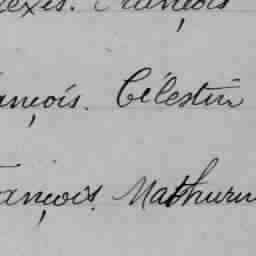 lexis. François
ançois. Célestin
ançois. Mathurin